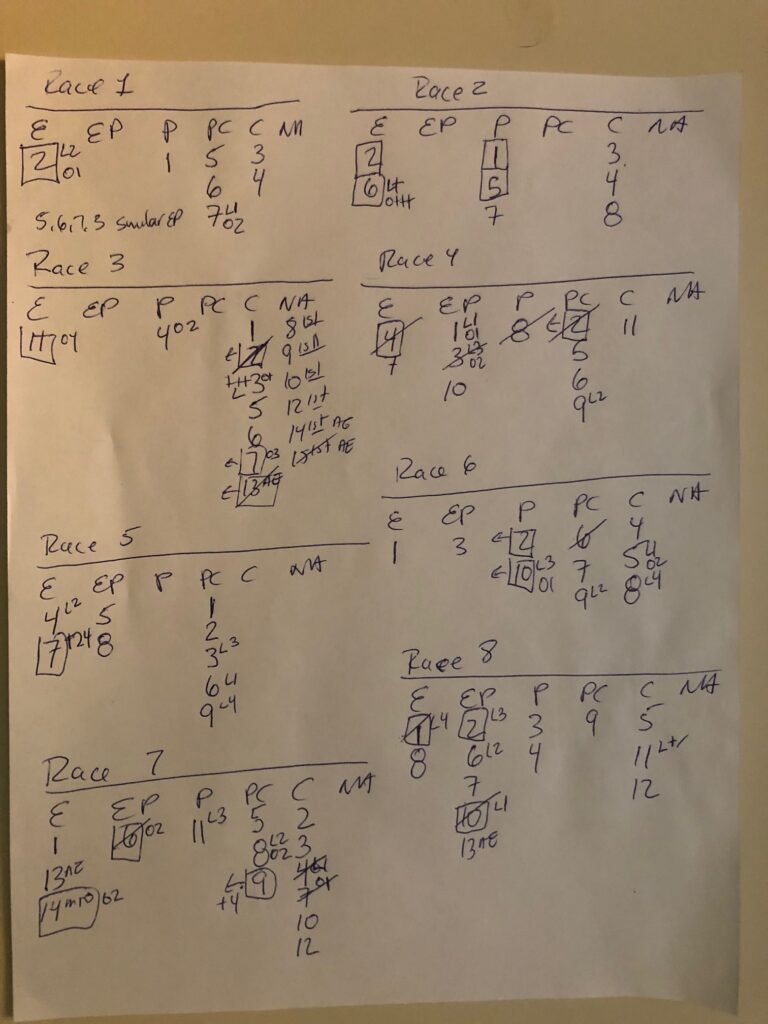 Race 1
E EP P PC C NA
2 L2 O1 1 5 3
6 4
5,6,7,3 similar EP 7 L1 O2
Race 2
E EP P PC C NA
2 1 3
6 5 4
7 8
Race 3
E EP P PC C NA
11 O4 4 O2 1 8 1st
2 9 1st
3 10 1st
5 12 1st
6 14 1st AE
7 O3 AE
13 AE
Race 4
E EP P PC C NA
4 1 L1 O1 8 2 11
7 3 L3 O2 5
10 6
9 L2
Race 5
E EP P PC C NA
4 L2 5 1
7 8 2
3 L3
6 L1
9 L4
Race 6
E EP P PC C NA
1 3 2 6 4
10 L3 O1 7 5 L1 O2
9 L2 8 L4
Race 7
E EP P PC C NA
1 6 O2 11 L3 5 2
13 AE 8 L2 O2 3
14 MTO 9 4
+4 7
10
12
Race 8
E EP P PC C NA
1 L4 2 L3 3 9 5
8 6 L2 4 11
7 12
10 L1
13 AE